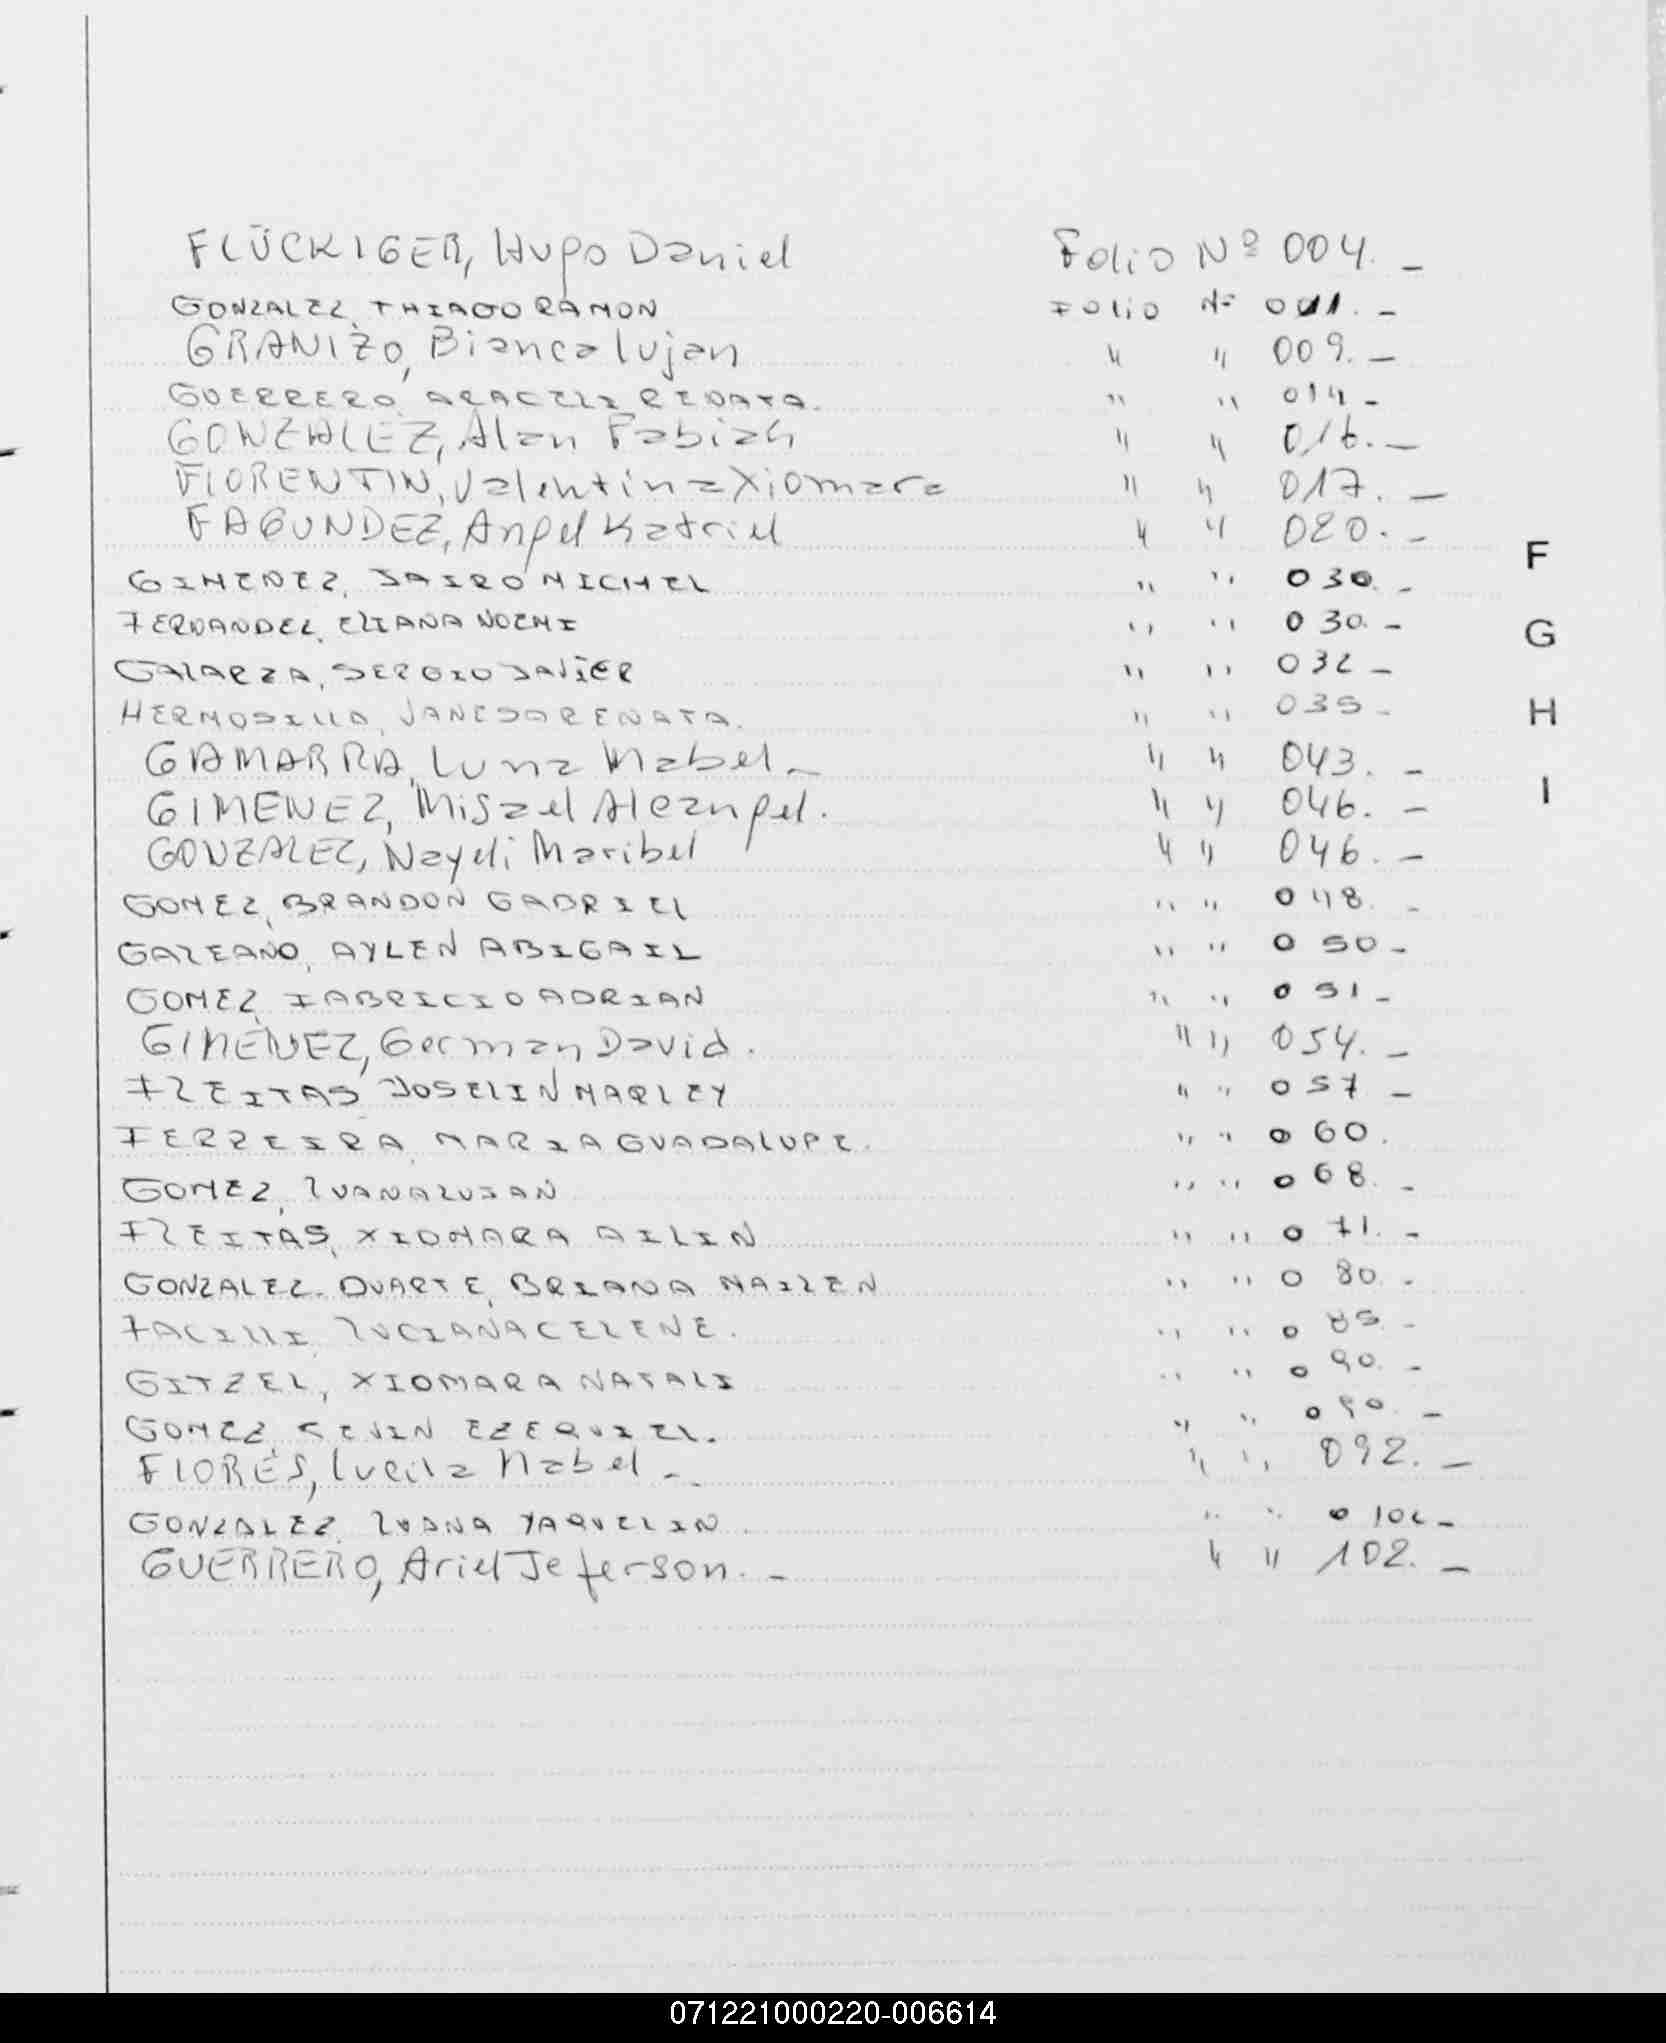 FLÜCKIGER, Hugo Daniel Folio Nº 004. -
GONZALEZ, THIAGO RAMON FOLIO Nº 011. -
GRANIZO, Bianca Lujan " " 009. -
GUERRERO, ARACELI RENATA. " " 014 -
GONZALEZ, Alan Fabian " " 016. -
FLORENTIN, Valentina Xiomara " " 017. -
FAGUNDEZ, Angel Katriel " " 020. -
F
GIMENEZ, JAIRO MICHEL " " 030. -
FERNANDEZ, ELIANA NOEMI " " 030. -
G
GALARZA, SERGIO JAVIER " " 032 -
HERMOSILLA, RENATA. " " 035 -
H
GAMARRA, Luna Mabel - " " 043. -
GIMENEZ, Misael Aleangel. " " 046. -
I
GONZALEZ, Nayeli Maribel " " 046. -
GOMEZ, BRANDON GABRIEL " " 048. -
GALEANO, AYLEN ABIGAIL " " 050 -
GOMEZ, FABRICIO ADRIAN " " 051 -
GIMENEZ, German David. " " 054. -
FLEITAS JOSELIN MARLEY " " 057 -
FERREIRA, MARIA GUADALUPE. " " 060.
GOMEZ, LUANA LUJAN " " 068. -
FLEITAS, XIOMARA AILIN " " 071. -
GONZALEZ - DUARTE, BRIANA MAILEN " " 080. -
LUCIANA CELENE. " " 085. -
GITZEL, XIOMARA NATALI " " 090. -
GOMEZ, KEVIN EZEQUIEL. " " 090. -
FLORES, Lucila Mabel - " " 092. -
GONZALEZ, LUANA YAQUELIN " " -
GUERRERO, Ariel Jeferson. - " " 102. -
071221000220-006614